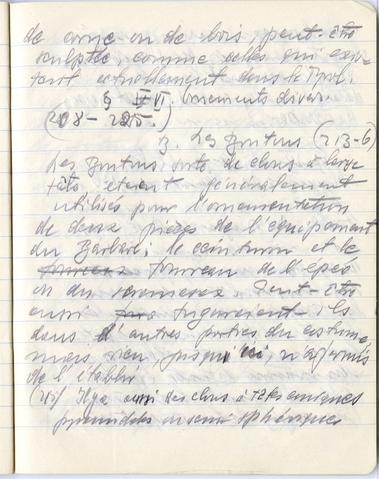 de corne ou de bois, peut-être
sculptée, comme celles qui exis-
tent actuellement dans le Tyrol.
§ VI. Ornements divers
(208-225.)
3. Les Boutons (213-6)
Les Boutons sorte de clous à large
tête étaient généralement
utilisés pour l'ornementation
de deux pièces de l'équipement
du Barbare; le ceinturon et le
fourreau de l'épée
ou du scramasax. Peut-être
aussi figuraient-ils
dans d'autres parties du costume,
mais rien, jusqu'ici, n'a permis
de l'établir
Il y a aussi des clous à têtes coniques
pyramidales ou semi sphériques